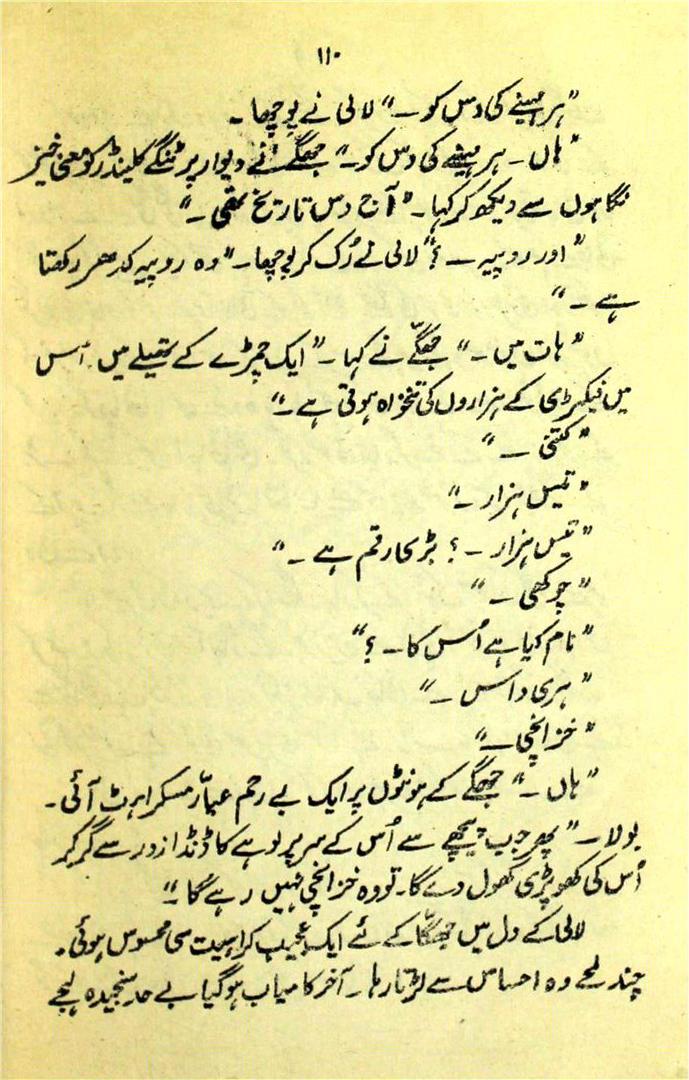 ۱۱۰
"ہر مہینے کی دس کو۔" لالی نے پوچھا۔
"ہاں۔ ہر مہینے کی دس کو۔" جھگّے نے دیوار پر ٹنگے کلینڈر کو معنی خیز
نگاہوں سے دیکھ کر کہا۔ "آج دس تاریخ تھی۔"
"اور روپیہ۔ ؟" لالی نے رُک کر پوچھا۔ "وہ روپیہ کدھر رکھتا
ہے۔"
"ہات میں۔" جھگّے نے کہا۔ "ایک چمڑے کے تھیلے میں۔ اُس
میں فیکٹری کے ہزاروں کی تنخواہ ہوتی ہے۔"
"کتنی۔"
"تیس ہزار۔"
"تیس ہزار۔ ؟ بڑی رقم ہے۔"
"چوکھی۔"
"نام کیا ہے اُس کا۔ ؟"
"ہری داس۔"
"خزانچی۔"
"ہاں۔" جھگّے کے ہونٹوں پر ایک بے رحم عیاّر مسکراہٹ آئی۔
بولا۔ "پھر جب پیچھے سے اُس کے سر پر لوہے کا ڈنڈا زور سے گر کر
اُس کی کھوپڑی کھول دے گا۔ تو وہ خزانچی نہیں رہے گا۔"
لالی کے دل میں جھگّا کے لئے ایک عجیب کراہیت سی محسوس ہوئی۔
چند لمحے وہ احساس سے لڑتا رہا۔ آخر کامیاب ہو گیا بے حد سنجیدہ لہجے